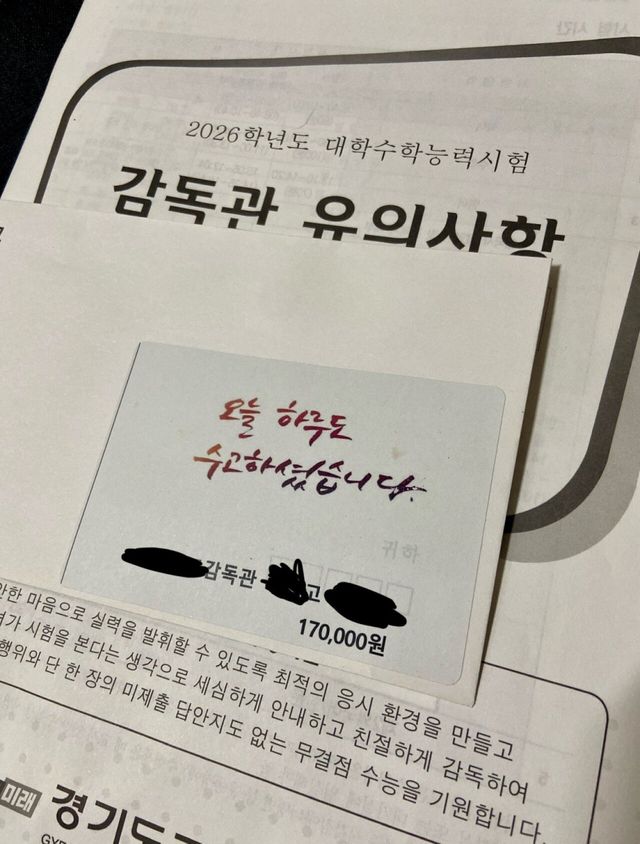 2026학년도 대학수학능력시험
감독관 유의사항
오늘 하루도
수고하셨습니다.
감독관 고
170,000원
마음으로 실력을 발휘할 수 있도록 최적의 응시 환경을 만들고
시험을 본다는 생각으로 세심하게 안내하고 친절하게 감독하여
단 한 장의 미제출 답안지도 없는 무결점 수능을 기원합니다.
미래 경기도